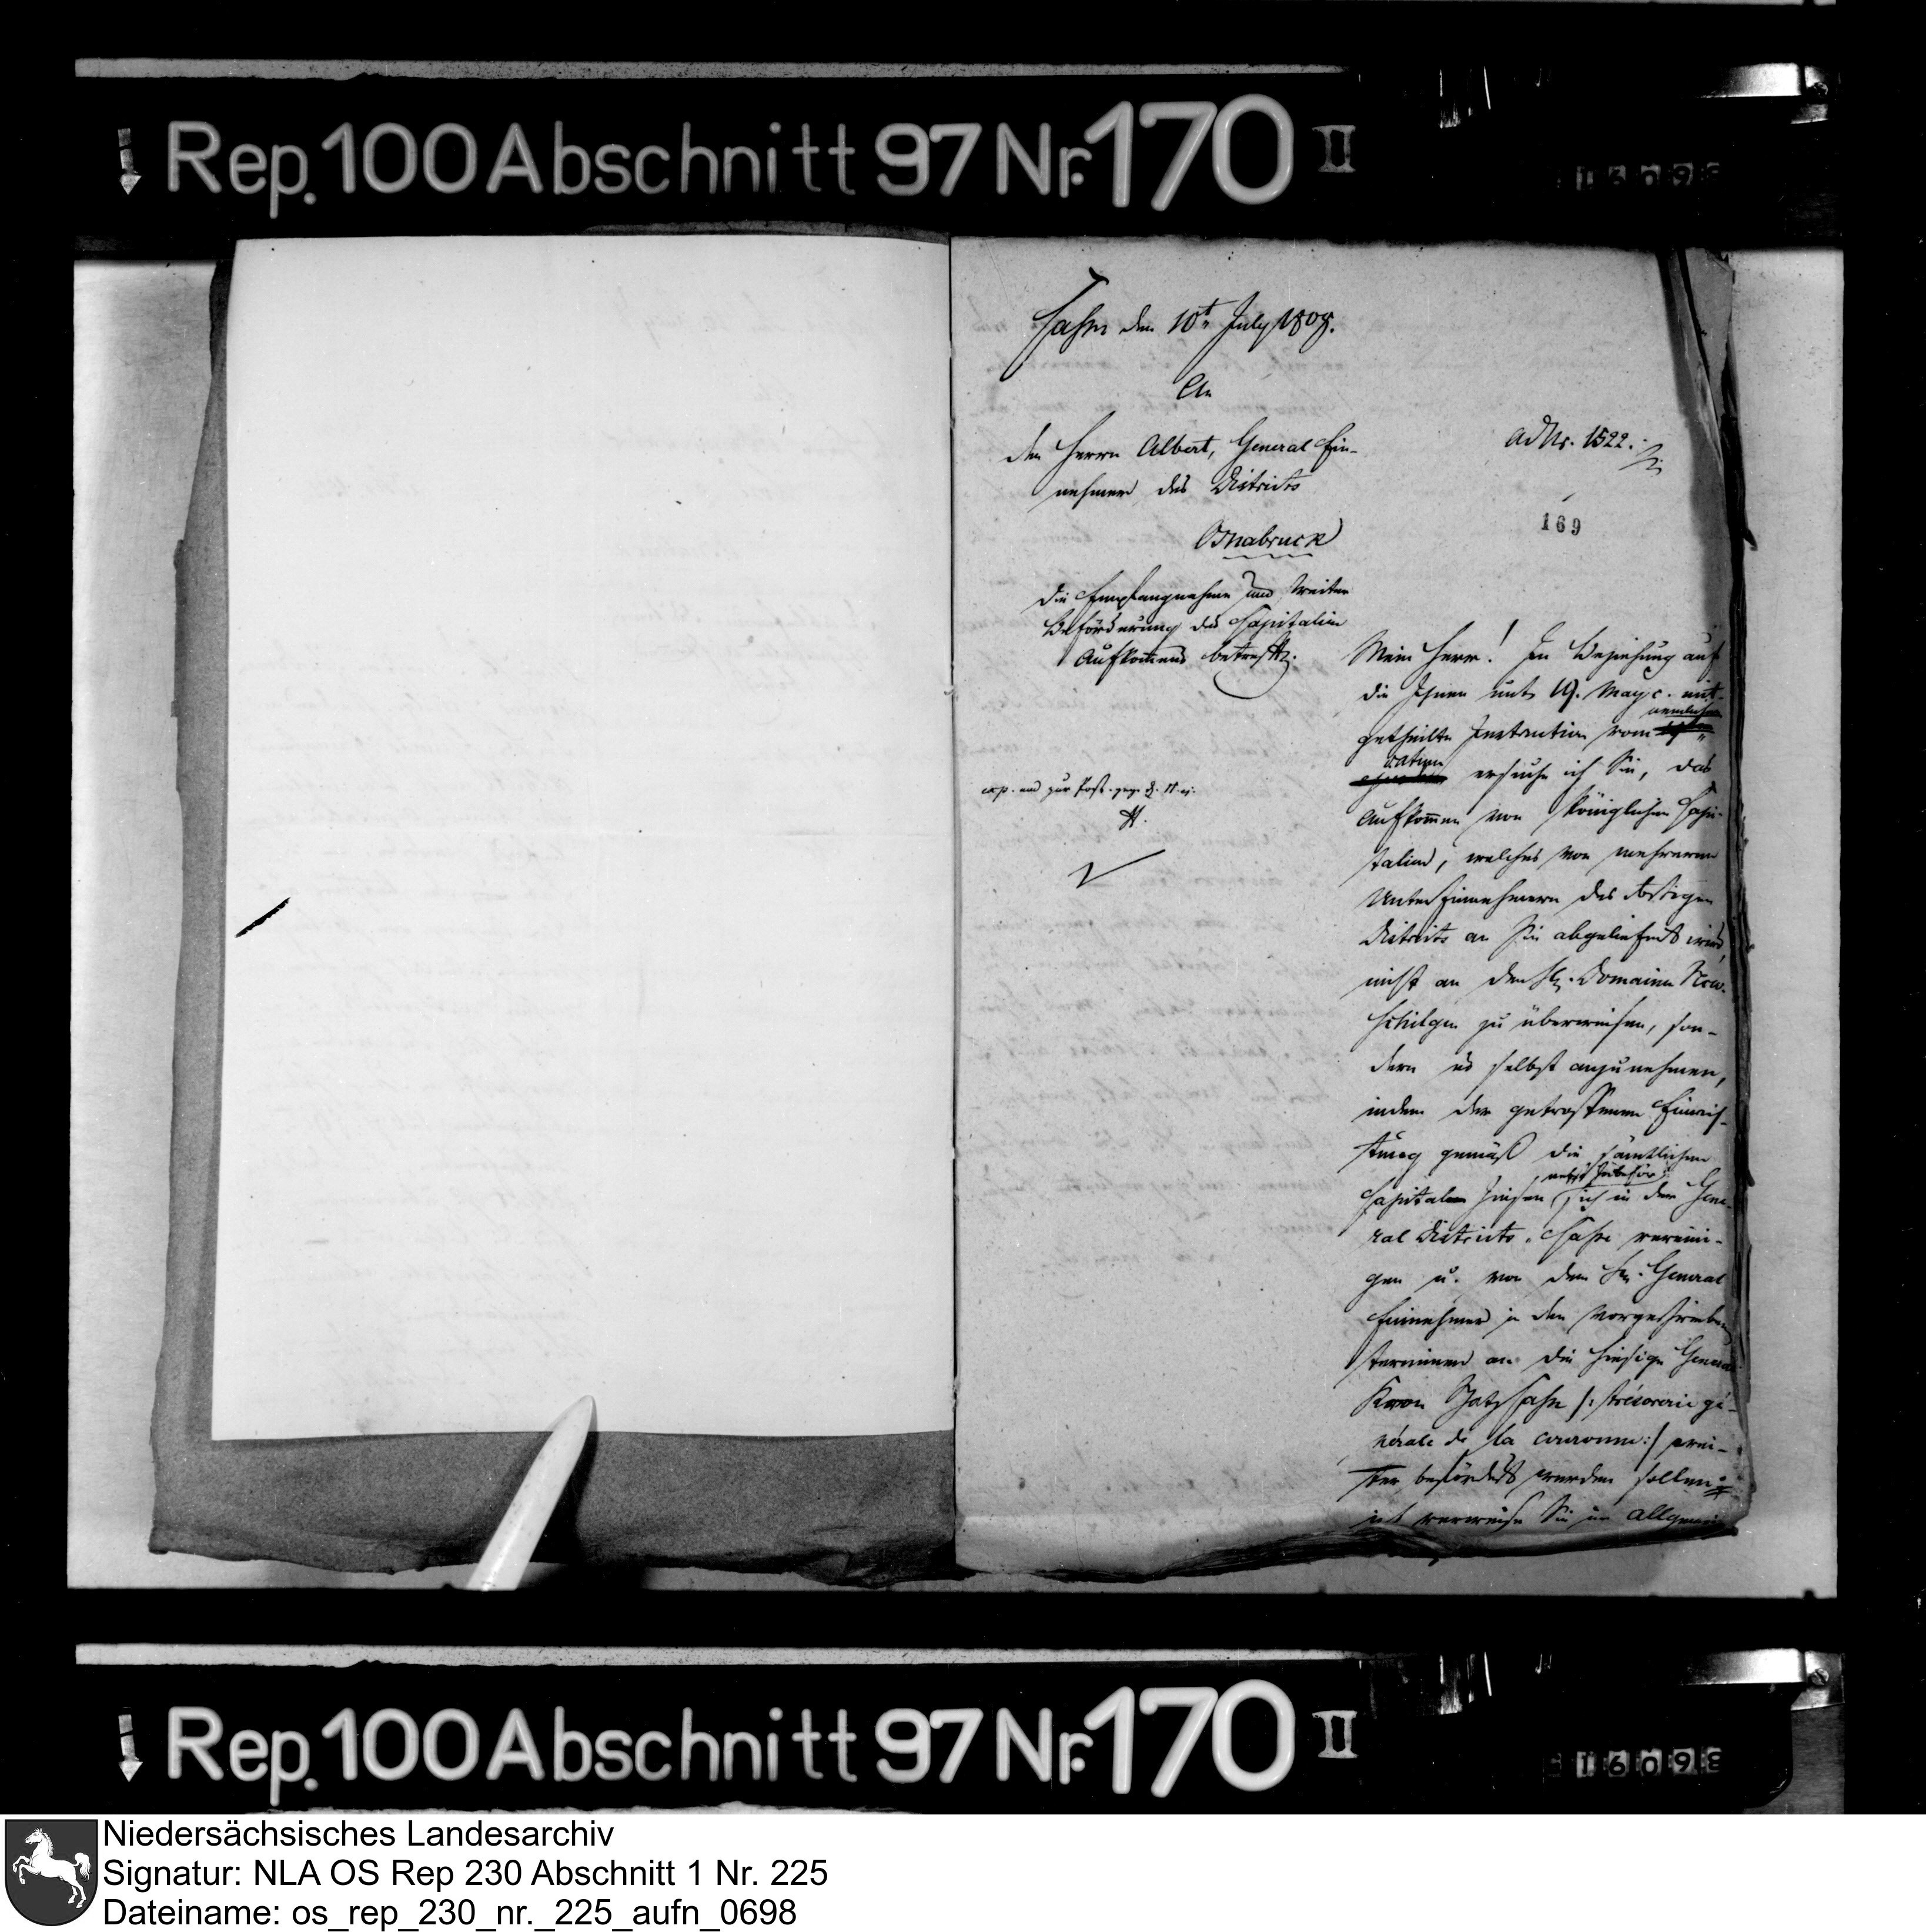 Rep. 100 Abschnitt 97 Nr. 170 II
16098
Cassel den 10t July 1808.
An
den Herrn Albert, General Ein-
nehmer des Districts
Osnabruck
die Empfangnahme und Weiter
Beförderung des Capitalien
Aufkomens betreff.
exp. und zur Post
ad Nr. 1522.
169
Mein Herr! In Beziehung auf
die Ihnen unt. 19. May c. mit-
getheilte Instruction vom
ersuche ich Sie, das
Aufkommen von Königlichen Capi-
talien, welches von mehreren
Unter Einnehmern des dortigen
Districts an Sie abgeliefert wird,
nicht an den H. Domainen Rec.
Schilgen zu überweisen, son-
dern es selbst anzunehmen,
indem der getroffenen Einrich-
tung gemäß die sämtlichen
Capitalien Zinsen sich in der Gene-
ral Districts Casse vereini-
gen u. von dem Hr. General
Einnehmer in den vorgeschriebenen
Terminen an die hiesige General
Kron Schatz Casse /: trésorerie gé-
nérale de la couronne :/ wei-
ter befördert werden sollen.
ich verweise Sie im Allgemein
Rep. 100 Abschnitt 97 Nr. 170 II
16098
Niedersächsisches Landesarchiv
Signatur: NLA OS Rep 230 Abschnitt 1 Nr. 225
Dateiname: os_rep_230_nr._225_aufn_0698